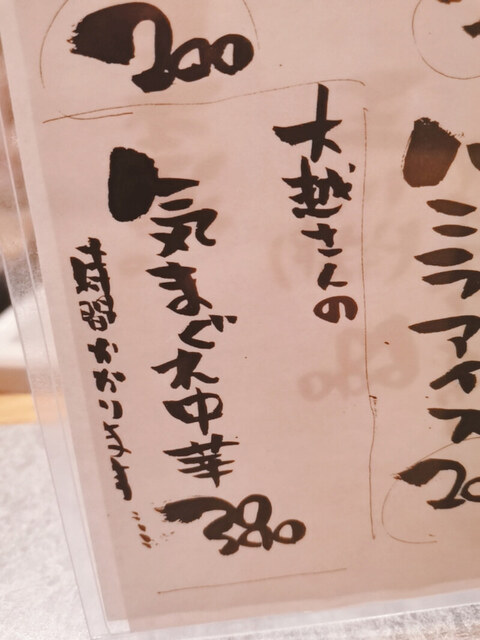 バニラアイス
20
大越さんの
気まぐれ中華
380
時間かかります....
200